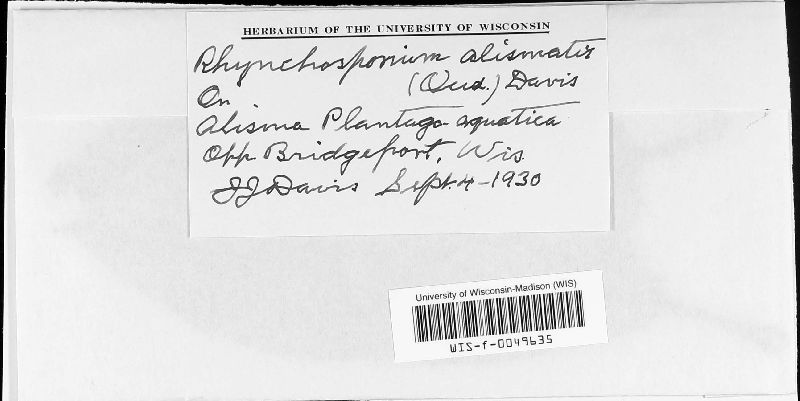 HERBARIUM OF THE UNIVERSITY OF WISCONSIN
Rhynchosporium alismatis
(Oud.) Davis
On
Alisma Plantago-aquatica
Opp Bridgeport, Wis
JJ Davis Sept. 4-1930
University of Wisconsin-Madison (WIS)
WIS-f-0049635